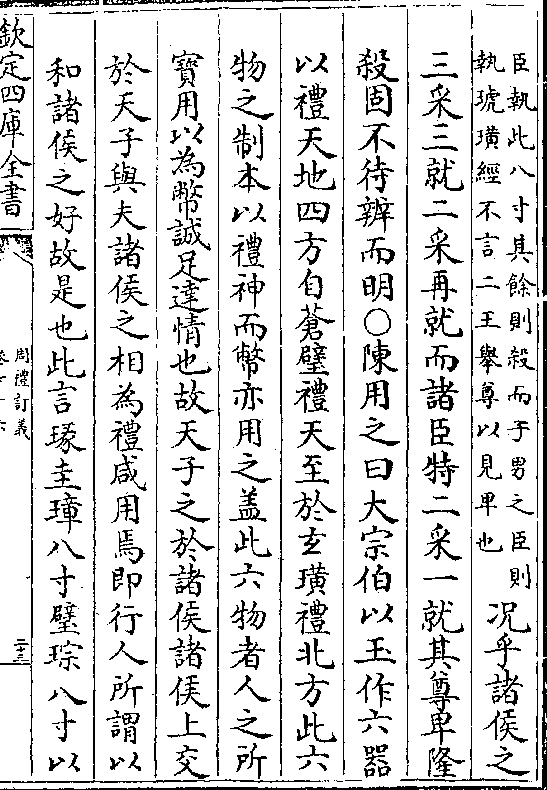 臣執此八寸其餘則殺而子男之臣則
執琥璜經不言二王舉尊以見卑也
况乎諸侯之
三采三就二采再就而諸臣特二采一就其尊卑隆
殺固不待辨而明○陳用之曰大宗伯以玉作六器
以禮天地四方自蒼璧禮天至於玄璜禮北方此六
物之制本以禮神而幣亦用之盖此六物者人之所
寳用以為幣誠足達情也故天子之於諸侯諸侯上交
於天子與夫諸侯之相為禮咸用焉即行人所謂以
和諸侯之好故是也此言瑑圭璋八寸璧琮八寸以
欽定四庫全書
周禮訂義
二十三